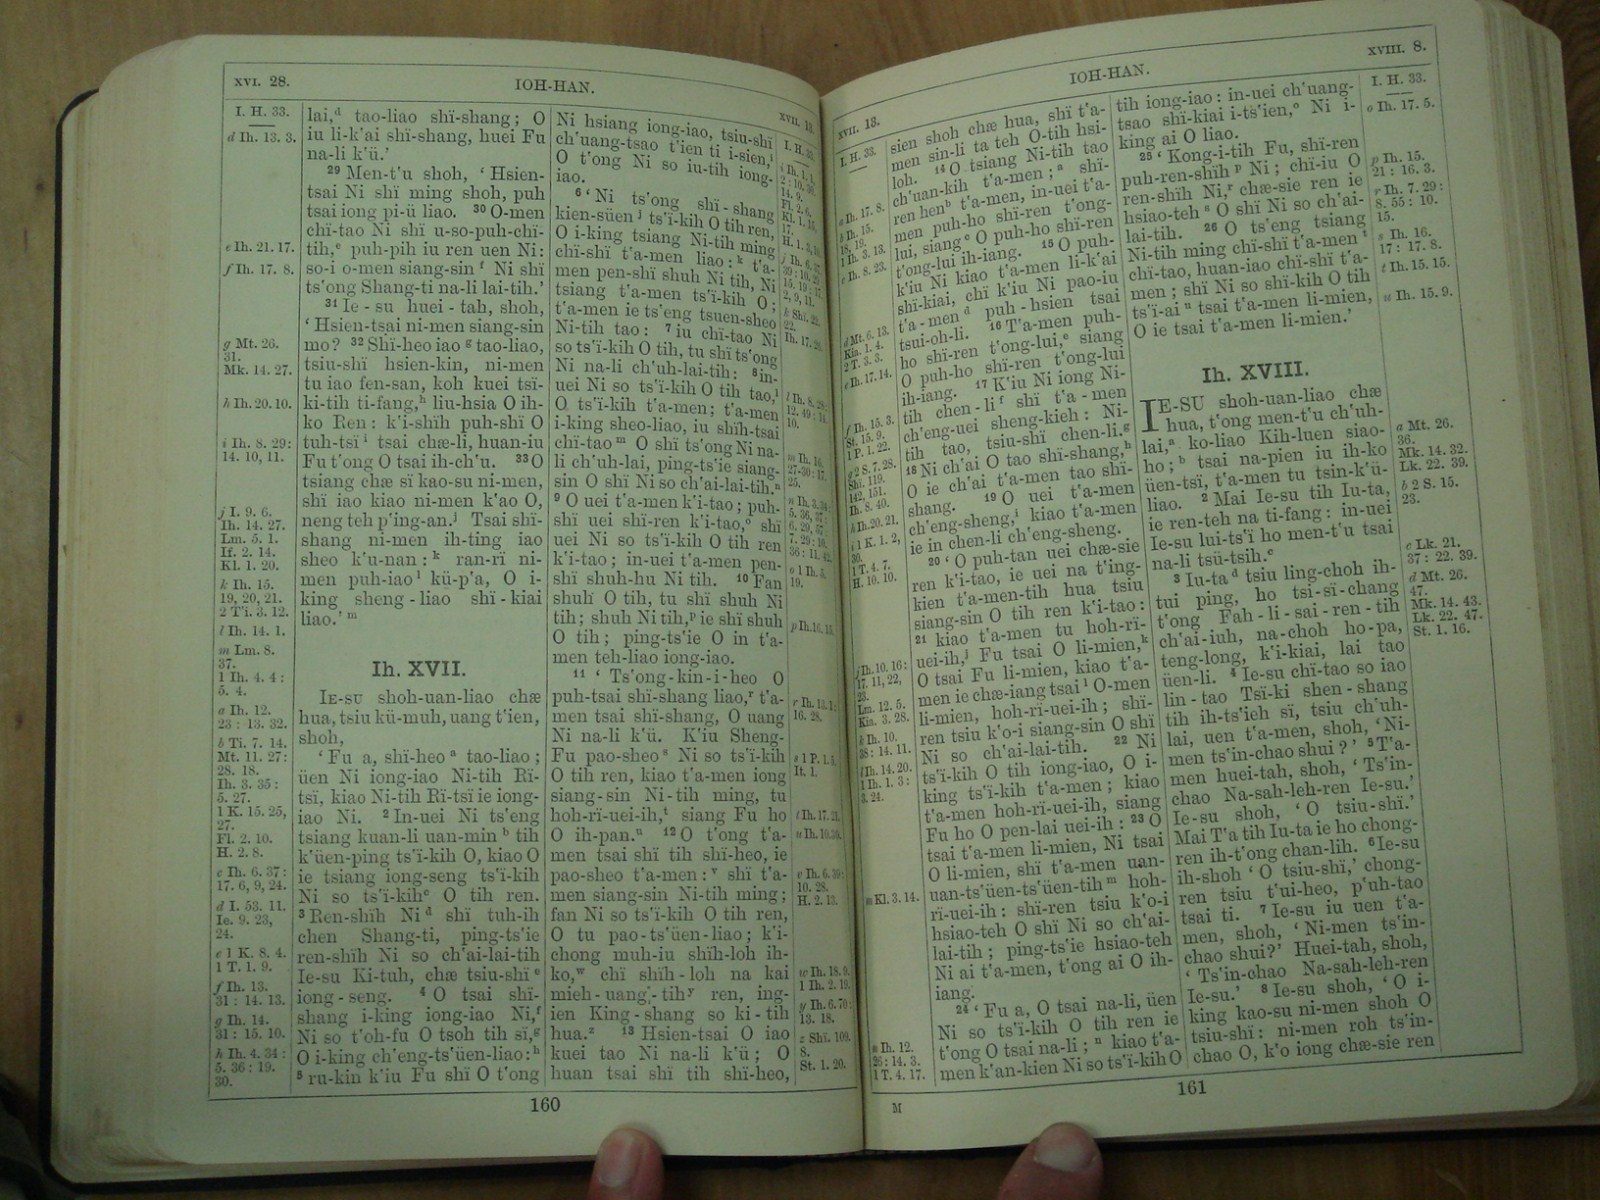 XVI. 28.
IOH-HAN.
XVII. 13.
I. H. 33.
d Ih. 13. 3.
e Ih. 21. 17.
f Ih. 17. 8.
g Mt. 26.
31.
Mk. 14. 27.
h Ih. 20. 10.
i Ih. 8. 29:
14. 10, 11.
j I. 9. 6.
Ih. 14. 27.
Lm. 5. 1.
If. 2. 14.
Kl. 1. 20.
k Ih. 15.
19, 20, 21.
2 T'i. 3. 12.
l Ih. 14. 1.
m Lm. 8.
37.
1 Ih. 4. 4:
5. 4.
a Ih. 12.
23: 13. 32.
b Ti. 7. 14.
Mt. 11. 27:
28. 18.
Ih. 3. 35:
5. 27.
1 K. 15. 25,
27.
Fl. 2. 10.
H. 2. 8.
c Ih. 6. 37:
17. 6, 9, 24.
d I. 53. 11.
Ie. 9. 23,
24.
e 1 K. 8. 4.
1 T. 1. 9.
f Ih. 13.
31: 14. 13.
g Ih. 14.
31: 15. 10.
h Ih. 4. 34:
5. 36: 19.
30.
lai,ᵈ tao-liao shï-shang; O
iu li-k'ai shï-shang, huei Fu
na-li k'ü.'
29 Men-t'u shoh, ' Hsien-
tsai Ni shï ming shoh, puh
tsai iong pi-ü liao. 30 O-men
chï-tao Ni shï u-so-puh-chï-
tih,ᵉ puh-pih iu ren uen Ni:
so-i o-men siang-sin ᶠ Ni shï
ts'ong Shang-ti na-li lai-tih.'
31 Ie-su huei-tah, shoh,
' Hsien-tsai ni-men siang-sin
mo? 32 Shï-heo iao ᵍ tao-liao,
tsiu-shï hsien-kin, ni-men
tu iao fen-san, koh kuei tsï-
ki-tih ti-fang,ʰ liu-hsia O ih-
ko Ren: k'i-shïh puh-shï O
tuh-tsï ⁱ tsai chæ-li, huan-iu
Fu t'ong O tsai ih-ch'u. 33 O
tsiang chæ sï kao-su ni-men,
shï iao kiao ni-men k'ao O,
neng teh p'ing-an.ʲ Tsai shï-
shang ni-men ih-ting iao
sheo k'u-nan: ᵏ ran-rï ni-
men puh-iao ˡ kü-p'a, O i-
king sheng-liao shï-kiai
liao.' ᵐ
Ih. XVII.
IE-SU shoh-uan-liao chæ
hua, tsiu kü-muh, uang t'ien,
shoh,
' Fu a, shï-heo ᵃ tao-liao;
üen Ni iong-iao Ni-tih Rï-
tsï, kiao Ni-tih Rï-tsï ie iong-
iao Ni. 2 In-uei Ni ts'eng
tsiang kuan-li uan-min ᵇ tih
k'üen-ping ts'ï-kih O, kiao O
ie tsiang iong-seng ts'ï-kih
Ni so ts'ï-kihᶜ O tih ren.
3 Ren-shïh Ni ᵈ shï tuh-ih
chen Shang-ti, ping-ts'ie
ren-shïh Ni so ch'ai-lai-tih
Ie-su Ki-tuh, chæ tsiu-shï ᵉ
iong-seng. 4 O tsai shï-
shang i-king iong-iao Ni,ᶠ
Ni so t'oh-fu O tsoh tih sï,ᵍ
O i-king ch'eng-ts'üen-liao: ʰ
5 ru-kin k'iu Fu shï O t'ong
Ni hsiang iong-iao, tsiu-shï
ch'uang-tsao t'ien ti i-sien,ⁱ
O t'ong Ni so iu-tih iong-
iao.
6 ' Ni ts'ong shï-shang
kien-süen ʲ ts'ï-kih O tih ren,
O i-king tsiang Ni-tih ming
chï-shï t'a-men liao: ᵏ t'a-
men pen-shï shuh Ni tih, Ni
tsiang t'a-men ts'ï-kih O;
t'a-men ie ts'eng tsuen-sheo
Ni-tih tao: 7 iu chï-tao Ni
so ts'ï-kih O tih, tu shï ts'ong
Ni na-li ch'uh-lai-tih: 8 in-
uei Ni so ts'ï-kih O tih tao,ˡ
O ts'ï-kih t'a-men; t'a-men
i-king sheo-liao, iu shïh-tsai
chï-tao ᵐ O shï ts'ong Ni na-
li ch'uh-lai, ping-ts'ie siang-
sin O shï Ni so ch'ai-lai-tih.ⁿ
9 O uei t'a-men k'i-tao; puh-
shï uei shï-ren k'i-tao,ᵒ shï
uei Ni so ts'ï-kih O tih ren
k'i-tao; in-uei t'a-men pen-
shï shuh-hu Ni tih. 10 Fan
shuh O tih, tu shï shuh Ni
tih; shuh Ni tih,ᵖ ie shï shuh
O tih; ping-ts'ie O in t'a-
men teh-liao iong-iao.
11 ' Ts'ong-kin-i-heo O
puh-tsai shï-shang liao,ʳ t'a-
men tsai shï-shang, O uang
Ni na-li k'ü. K'iu Sheng-
Fu pao-sheo ˢ Ni so ts'ï-kih
O tih ren, kiao t'a-men iong
siang-sin Ni-tih ming, tu
hoh-rï-uei-ih,ᵗ siang Fu ho
O ih-pan.ᵘ 12 O t'ong t'a-
men tsai shï tih shï-heo, ie
pao-sheo t'a-men: ᵛ shï t'a-
men siang-sin Ni-tih ming;
fan Ni so ts'ï-kih O tih ren,
O tu pao-ts'üen-liao; k'i-
chong muh-iu shïh-loh ih-
ko,ʷ chï shïh-loh na kai
mieh-uang-tih ʸ ren, ing-
ien King-shang so ki-tih
hua.ᶻ 13 Hsien-tsai O iao
kuei tao Ni na-li k'ü; O
huan tsai shï tih shï-heo,
I. H. 33.
p Ih. 16. 15.
16. 28.
s 1 P. 1. 5.
It. 1.
t Ih. 17. 21.
u Ih. 10. 30.
v Ih. 6. 39:
10. 28.
H. 2. 13.
w Ih. 18. 9.
1 Ih. 2. 19.
y Ih. 6. 70:
13. 18.
z Shï. 109.
8.
St. 1. 20.
160
XVII. 13.
IOH-HAN.
XVIII. 8.
I. H. 33.
a Ih. 17. 8.
b Ih. 15.
18, 19.
1 Ih. 3. 13.
c Ih. 8. 23.
d Mt. 6. 13.
Kia. 1. 4.
2 T. 3. 3.
e Ih. 17. 14.
f Ih. 15. 3.
St. 15. 9.
1 P. 1. 22.
g 2 S. 7. 28.
Shï. 119.
142, 151.
Ih. 8. 40.
h Ih. 20. 21.
i 1 K. 1. 2,
30.
1 T. 4. 7.
H. 10. 10.
j Ih. 10. 16:
17. 11, 22,
23.
Lm. 12. 5.
Kia. 3. 28.
k Ih. 10.
38: 14. 11.
l Ih. 14. 20.
1 Ih. 1. 3:
3. 24.
m Kl. 3. 14.
n Ih. 12.
26: 14. 3.
1 T. 4. 17.
sien shoh chæ hua, shï t'a-
men sin-li ta teh O-tih hsi-
loh. 14 O tsiang Ni-tih tao
ch'uan-kih t'a-men; ᵃ shï-
ren hen ᵇ t'a-men, in-uei t'a-
men puh-ho shï-ren t'ong-
lui, siang ᶜ O puh-ho shï-ren
t'ong-lui ih-iang. 15 O puh-
k'iu Ni kiao t'a-men li-k'ai
shï-kiai, chï k'iu Ni pao-iu
t'a-men ᵈ puh-hsien tsai
tsui-oh-li. 16 T'a-men puh-
ho shï-ren t'ong-lui,ᵉ siang
O puh-ho shï-ren t'ong-lui
ih-iang. 17 K'iu Ni iong Ni-
tih chen-li ᶠ shï t'a-men
ch'eng-uei sheng-kieh: Ni-
tih tao, tsiu-shï chen-li.ᵍ
18 Ni ch'ai O tao shï-shang,ʰ
O ie ch'ai t'a-men tao shï-
shang. 19 O uei t'a-men
ch'eng-sheng,ⁱ kiao t'a-men
ie in chen-li ch'eng-sheng.
20 ' O puh-tan uei chæ-sie
ren k'i-tao, ie uei na t'ing-
kien t'a-men-tih hua tsiu
siang-sin O tih ren k'i-tao:
21 kiao t'a-men tu hoh-rï-
uei-ih,ʲ Fu tsai O li-mien,ᵏ
O tsai Fu li-mien, kiao t'a-
men ie chæ-iang tsai ˡ O-men
li-mien, hoh-rï-uei-ih; shï-
ren tsiu k'o-i siang-sin O shï
Ni so ch'ai-lai-tih. 22 Ni
ts'ï-kih O tih iong-iao, O i-
king ts'ï-kih t'a-men; kiao
t'a-men hoh-rï-uei-ih, siang
Fu ho O pen-lai uei-ih: 23 O
tsai t'a-men li-mien, Ni tsai
O li-mien, shï t'a-men uan-
uan-ts'üen-ts'üen-tih ᵐ hoh-
rï-uei-ih: shï-ren tsiu k'o-i
hsiao-teh O shï Ni so ch'ai-
lai-tih; ping-ts'ie hsiao-teh
Ni ai t'a-men, t'ong ai O ih-
iang.
24 ' Fu a, O tsai na-li, üen
Ni so ts'ï-kih O tih ren ie
t'ong O tsai na-li; ⁿ kiao t'a-
men k'an-kien Ni so ts'ï-kih O
tih iong-iao: in-uei ch'uang-
tsao shï-kiai i-ts'ien,ᵒ Ni i-
king ai O liao.
25 ' Kong-i-tih Fu, shï-ren
puh-ren-shïh ᵖ Ni; chï-iu O
ren-shïh Ni,ʳ chæ-sie ren ie
hsiao-teh ˢ O shï Ni so ch'ai-
lai-tih. 26 O ts'eng tsiang
Ni-tih ming chï-shï t'a-men ᵗ
chï-tao, huan-iao chï-shï t'a-
men; shï Ni so shï-kih O tih
ts'ï-ai ᵘ tsai t'a-men li-mien,
O ie tsai t'a-men li-mien.'
Ih. XVIII.
IE-SU shoh-uan-liao chæ
hua, t'ong men-t'u ch'uh-
lai,ᵃ ko-liao Kih-luen siao-
ho; ᵇ tsai na-pien iu ih-ko
üen-tsï, t'a-men tu tsin-k'ü-
liao. 2 Mai Ie-su tih Iu-ta,
ie ren-teh na ti-fang: in-uei
Ie-su lui-ts'ï ho men-t'u tsai
na-li tsü-tsih.ᶜ
3 Iu-ta ᵈ tsiu ling-choh ih-
tui ping, ho tsi-sï-chang
t'ong Fah-li-sai-ren-tih
ch'ai-iuh, na-choh ho-pa,
teng-long, k'i-kiai, lai tao
üen-li. 4 Ie-su chï-tao so iao
lin-tao Tsï-ki shen-shang
tih ih-ts'ieh sï, tsiu ch'uh-
lai, uen t'a-men, shoh, ' Ni-
men ts'in-chao shui?' 5 T'a-
men huei-tah, shoh, ' Ts'in-
chao Na-sah-leh-ren Ie-su.'
Ie-su shoh, ' O tsiu-shï.'
Mai T'a tih Iu-ta ie ho chong-
ren ih-t'ong chan-lih. 6 Ie-su
ih-shoh ' O tsiu-shï,' chong-
ren tsiu t'ui-heo, p'uh-tao
tsai ti. 7 Ie-su iu uen t'a-
men, shoh, ' Ni-men ts'in-
chao shui?' Huei-tah, shoh,
' Ts'in-chao Na-sah-leh-ren
Ie-su.' 8 Ie-su shoh, ' O i-
king kao-su ni-men shoh O
tsiu-shï: ni-men roh ts'in-
chao O, k'o iong chæ-sie ren
I. H. 33.
o Ih. 17. 5.
p Ih. 15.
21: 16. 3.
r Ih. 7. 29:
8. 55: 10.
15.
s Ih. 16.
17: 17. 8.
t Ih. 15. 15.
u Ih. 15. 9.
a Mt. 26.
36.
Mk. 14. 32.
Lk. 22. 39.
b 2 S. 15.
23.
c Lk. 21.
37: 22. 39.
d Mt. 26.
47.
Mk. 14. 43.
Lk. 22. 47.
St. 1. 16.
M
161